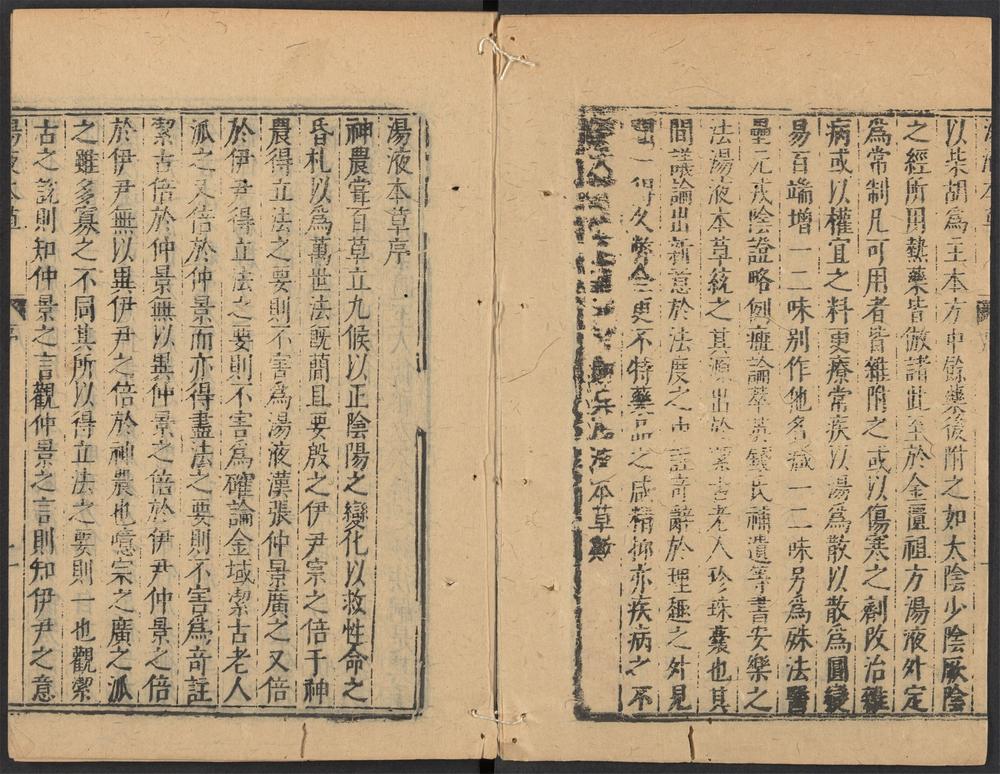 以柴胡為主本方中餘藥後附之如太陰少陰厥陰
之經所用熱藥皆倣諸此至於金匱祖方湯液外定
為常制凡可用者皆雜附之或以傷寒之劑改治雜
病或以權宜之料更療常疾以湯為散以散為圓變
易百端增一二味別作他名減一二味另為殊法醫
壘元戎陰證略例癍論萃英錢氏補遺等書安樂之
法湯液本草統之其源出於潔古老人珍珠囊也其
間議論出新意於法度之中註奇辭於理趣之外見
一得久弊全更不特藥品之咸精抑亦疾病之不
液本草
湯液本草序
神農嘗百草立九候以正陰陽之變化以救性命之
昏札以為萬世法既簡且要殷之伊尹宗之倍于神
農得立法之要則不害為湯液漢張仲景廣之又倍
於伊尹得立法之要則不害為確論金域潔古老人
派之又倍於仲景而亦得盡法之要則不害為奇註
潔古倍於仲景無以異仲景之倍於伊尹仲景之倍
於伊尹無以異伊尹之倍於神農也噫宗之廣之派
之雖多寡之不同其所以得立法之要則一也觀潔
古之說則知仲景之言觀仲景之言則知伊尹之意
湯液本草 序 一